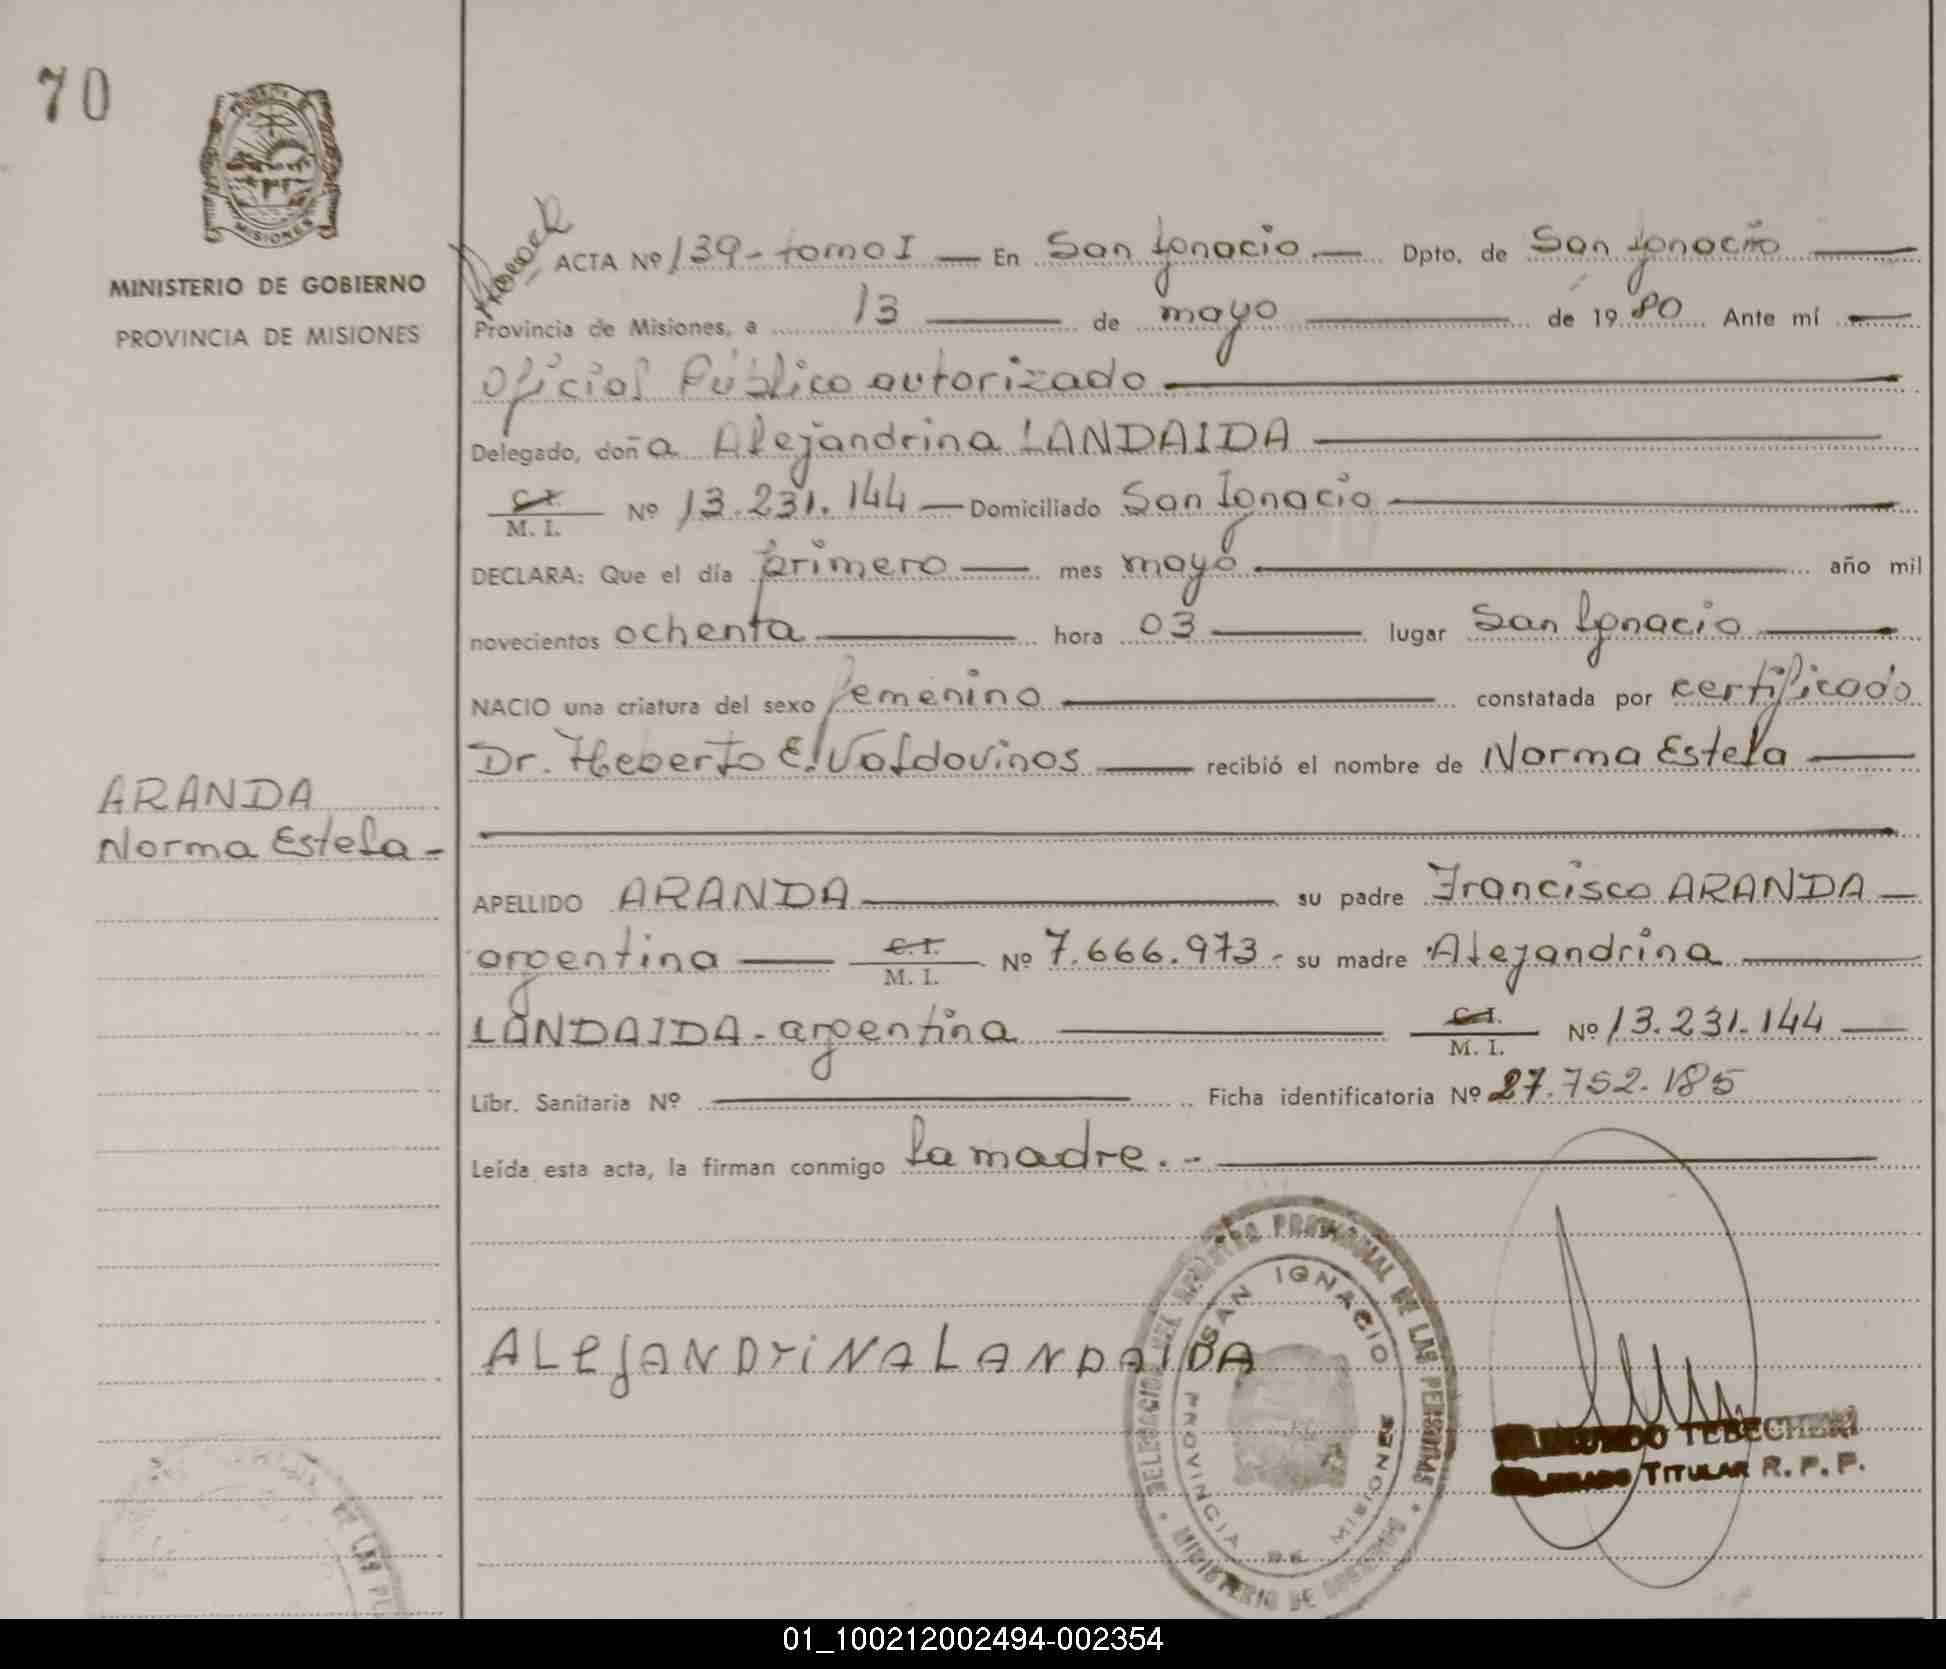 70
MISIONES
MINISTERIO DE GOBIERNO
PROVINCIA DE MISIONES
ACTA Nº 139-tomo I — En San Ignacio.— Dpto. de San Ignacio —
Provincia de Misiones, a 13 — de mayo — de 1980 Ante mí —
Oficial Público autorizado —
Delegado, doña Alejandrina LANDAIDA —
C.I.
M. I. Nº 13.231.144 — Domiciliado San Ignacio —
DECLARA: Que el día primero — mes mayo — año mil
novecientos ochenta — hora 03 — lugar San Ignacio —
NACIO una criatura del sexo femenino — constatada por certificado
Dr. Heberto E. Valdovinos — recibió el nombre de Norma Estela —
ARANDA
Norma Estela -
APELLIDO ARANDA — su padre Francisco ARANDA —
argentina — C.I.
M. I. Nº 7.666.973.- su madre Alejandrina —
LANDAIDA - argentina — C.I.
M. I. Nº 13.231.144 —
Libr. Sanitaria Nº — Ficha identificatoria Nº 27.752.185
Leída esta acta, la firman conmigo la madre.- —
ALEJANDRINA LANDAIDA
DELEGACION DEL REGISTRO PROVINCIAL DE LAS PERSONAS
SAN IGNACIO
PROVINCIA DE MISIONES
MINISTERIO DE GOBIERNO
TEBECHERI
TITULAR R. P. P.
DE LAS PE
01_100212002494-002354